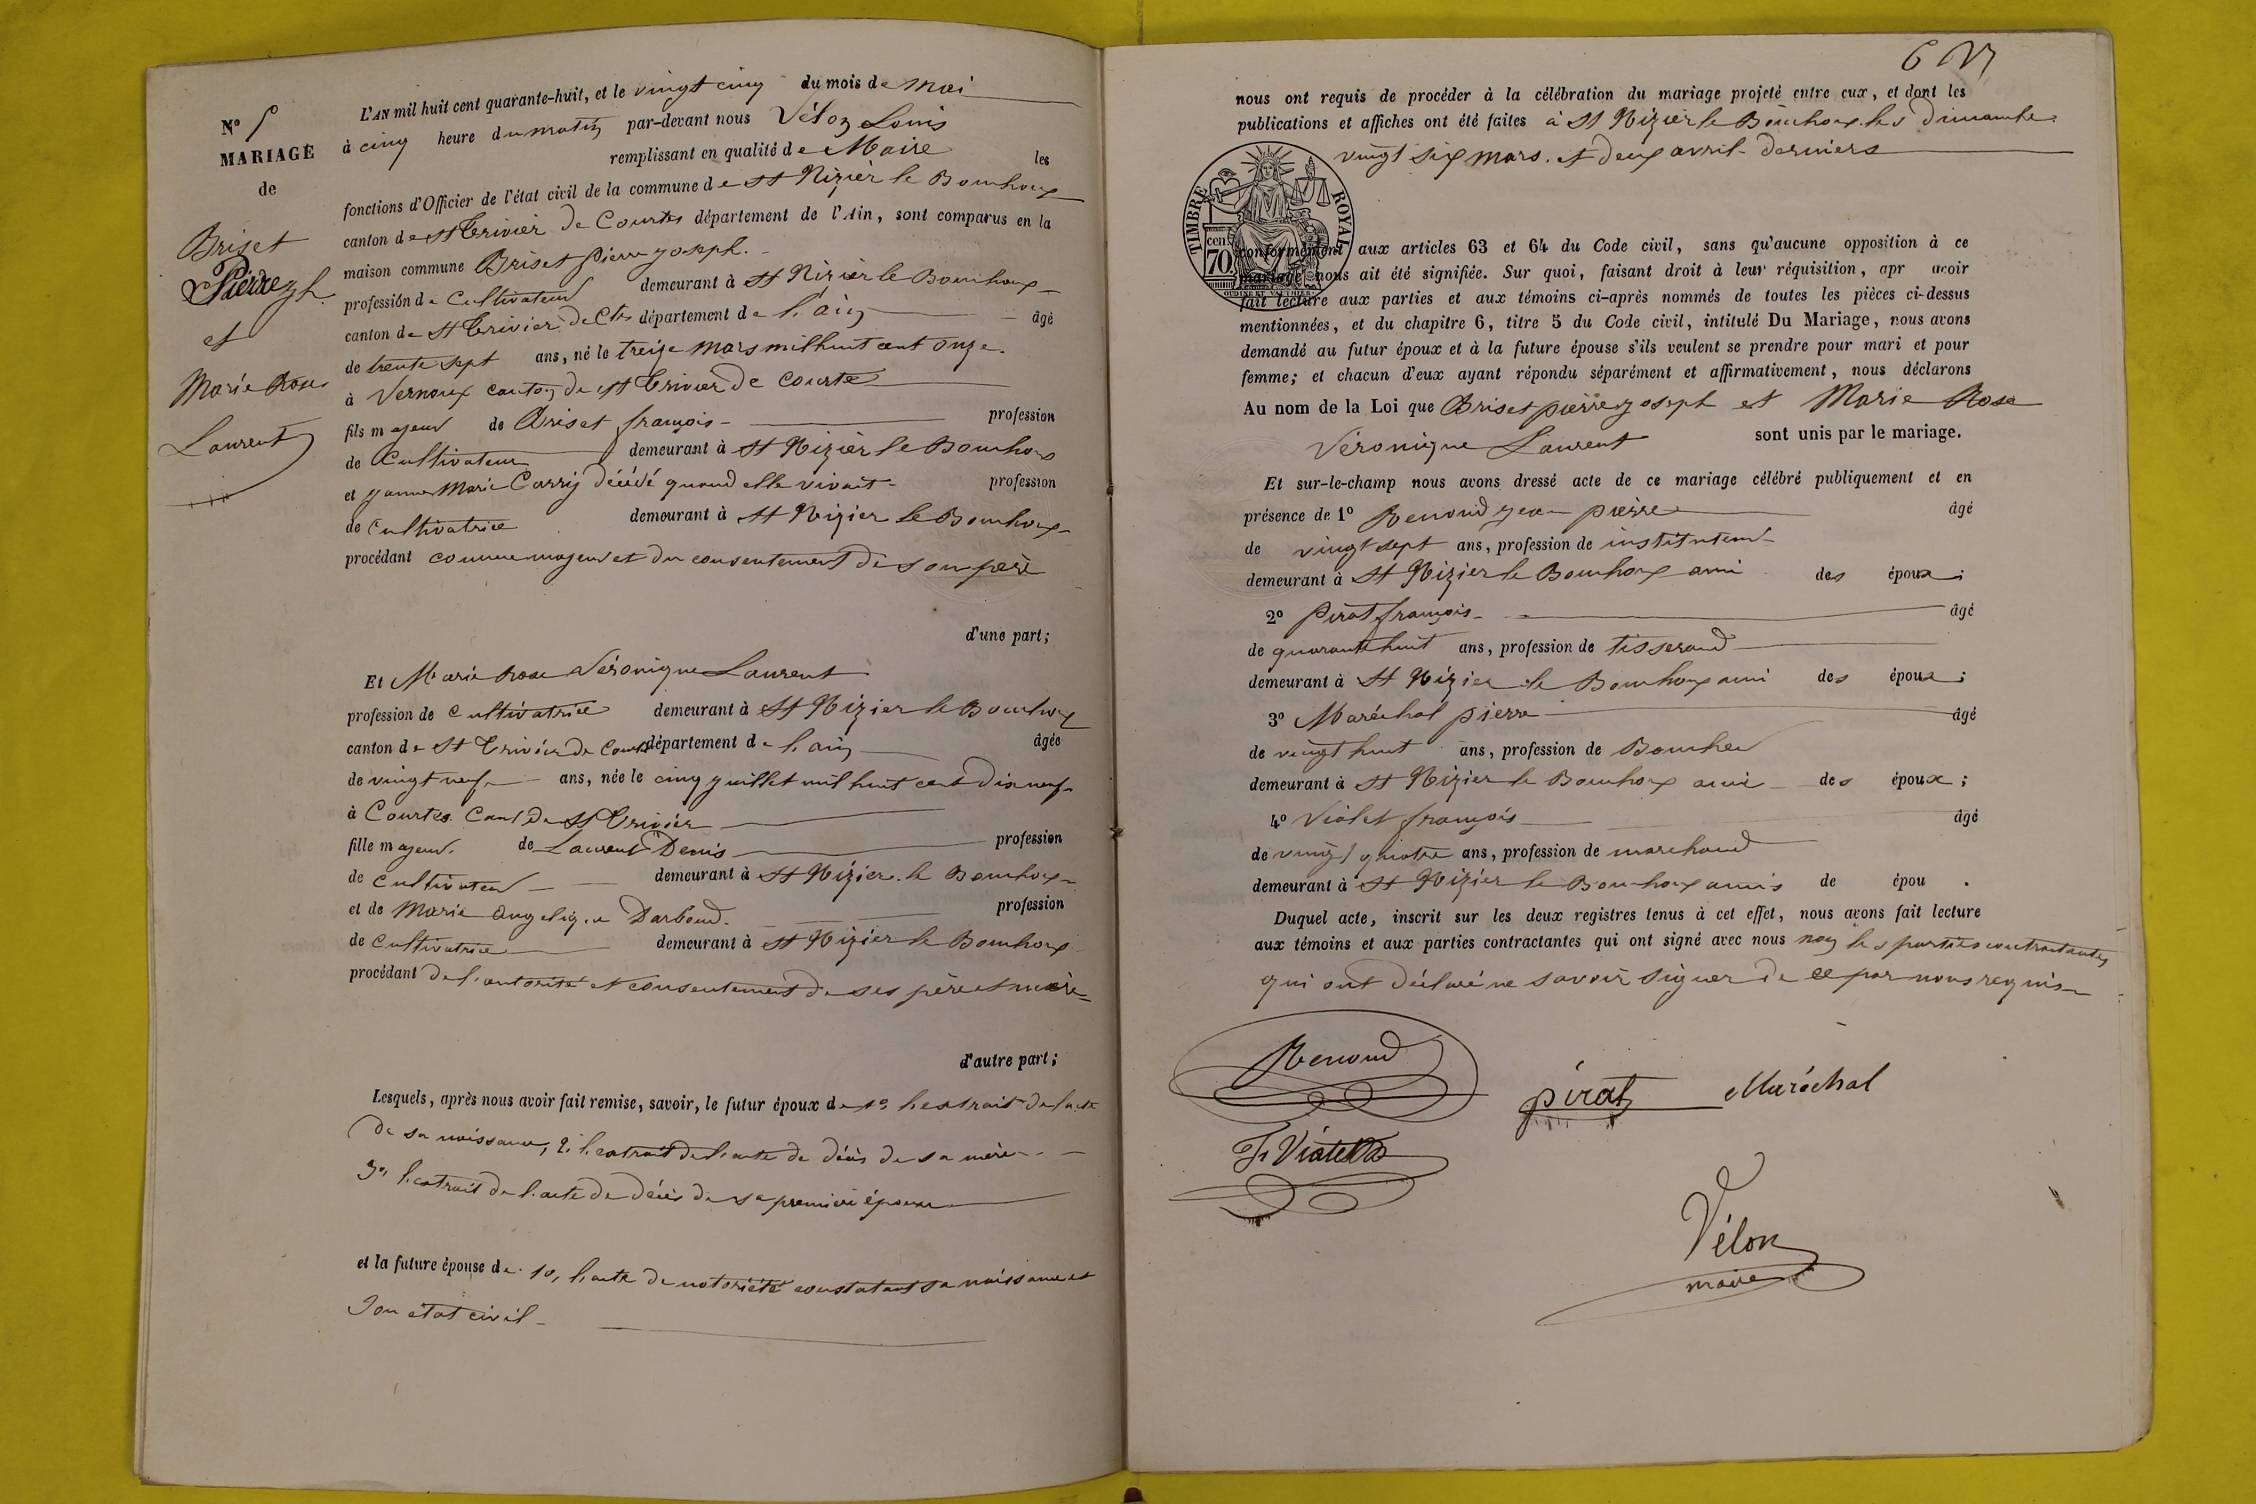 N° 5
MARIAGE
de
Briset
Pierre jh
et
Marie Rose
Laurent
L'AN mil huit cent quarante-huit, et le vingt cinq du mois de mai
à cinq heure du matin par-devant nous Vélon Louis
remplissant en qualité de Maire les
fonctions d'Officier de l'état civil de la commune de St Nizier le Bouchoux
canton de St Trivier de Courtes département de l'Ain, sont comparus en la
maison commune Briset pierre joseph.
profession de Cultivateur demeurant à St Nizier le Bouchoux
canton de St Trivier de Ctes département de l'ain âgé
de trente sept ans, né le treize mars mil huit cent onze.
à Vernoux canton de St Trivier de Courtes
fils majeur de Briset françois profession
de Cultivateur demeurant à St Nizier le Bouchoux
et jeanne Marie décédé quand elle vivait profession
de Cultivatrice demeurant à St Nizier le Bouchoux
procédant comme majeur et du consentement de son père
d'une part;
Et Marie Rose Véronique Laurent
profession de Cultivatrice demeurant à St Nizier le Bouchoux
canton de St Trivier de Courtes département de l'ain âgée
de vingt neuf ans, née le cinq juillet mil huit cent dix neuf
à Courtes Cant de St Trivier
fille majeur. de Laurent Denis profession
de Cultivateur demeurant à St Nizier le Bouchoux
et de Marie angelique Darboud. profession
de Cultivatrice demeurant à St Nizier le Bouchoux
procédant de l'autorité et consentement de ses père et mère
d'autre part;
Lesquels, après nous avoir fait remise, savoir, le futur époux de 1° l'extrait de l'acte
de sa naissance, 2° l'extrait de l'acte de décès de sa mère
3° l'extrait de l'acte de décès de sa premiere épouse
et la future épouse de 1°, l'acte de notoriété constatant sa naissance et
son état civil
6
nous ont requis de procéder à la célébration du mariage projeté entre eux, et dont les
publications et affiches ont été faites à St Nizier le Bouchoux les dimanche
vingt six mars et deux avril derniers
TIMBRE ROYAL
cen. 70.
conformément aux articles 63 et 64 du Code civil, sans qu'aucune opposition à ce
mariage nous ait été signifiée. Sur quoi, faisant droit à leur réquisition, apr avoir
fait lecture aux parties et aux témoins ci-après nommés de toutes les pièces ci-dessus
mentionnées, et du chapitre 6, titre 5 du Code civil, intitulé Du Mariage, nous avons
demandé au futur époux et à la future épouse s'ils veulent se prendre pour mari et pour
femme; et chacun d'eux ayant répondu séparément et affirmativement, nous déclarons
Au nom de la Loi que Briset pierre joseph et Marie Rose
Véronique Laurent sont unis par le mariage.
Et sur-le-champ nous avons dressé acte de ce mariage célébré publiquement et en
présence de 1° Renoud jean pierre âgé
de vingt sept ans, profession de instituteur
demeurant à St Nizier le Bouchoux ami des époux;
2° Pirat françois âgé
de quarante huit ans, profession de tisserand
demeurant à St Nizier le Bouchoux ami des époux;
3° Maréchal pierre âgé
de vingt huit ans, profession de Boucher
demeurant à St Nizier le Bouchoux ami des époux;
4° Violet françois âgé
de vingt quatre ans, profession de marchand
demeurant à St Nizier le Bouchoux amis de épou .
Duquel acte, inscrit sur les deux registres tenus à cet effet, nous avons fait lecture
aux témoins et aux parties contractantes qui ont signé avec nous non les parties contractantes
qui ont déclaré ne savoir signer de ce par nous requis
Renoud
pirat Maréchal
Vélon
maire